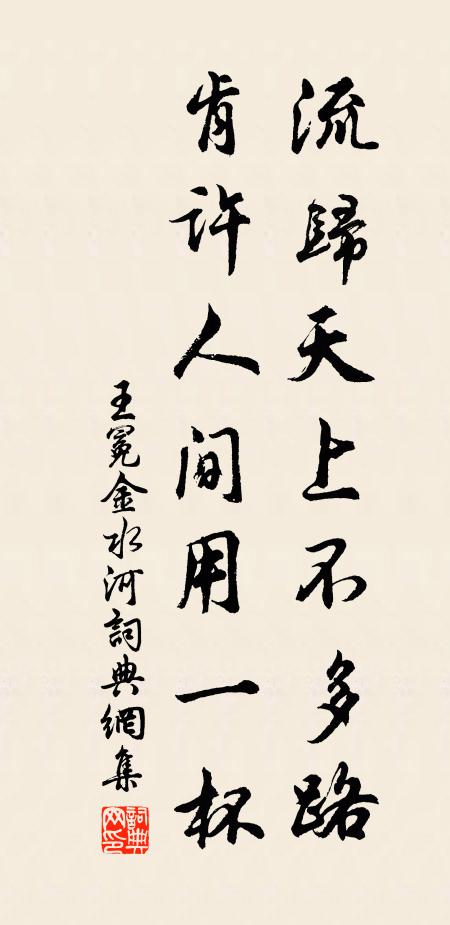 流歸天上不多路
肯許人间用一杯
王冕金水河詞典網集
詞典网印